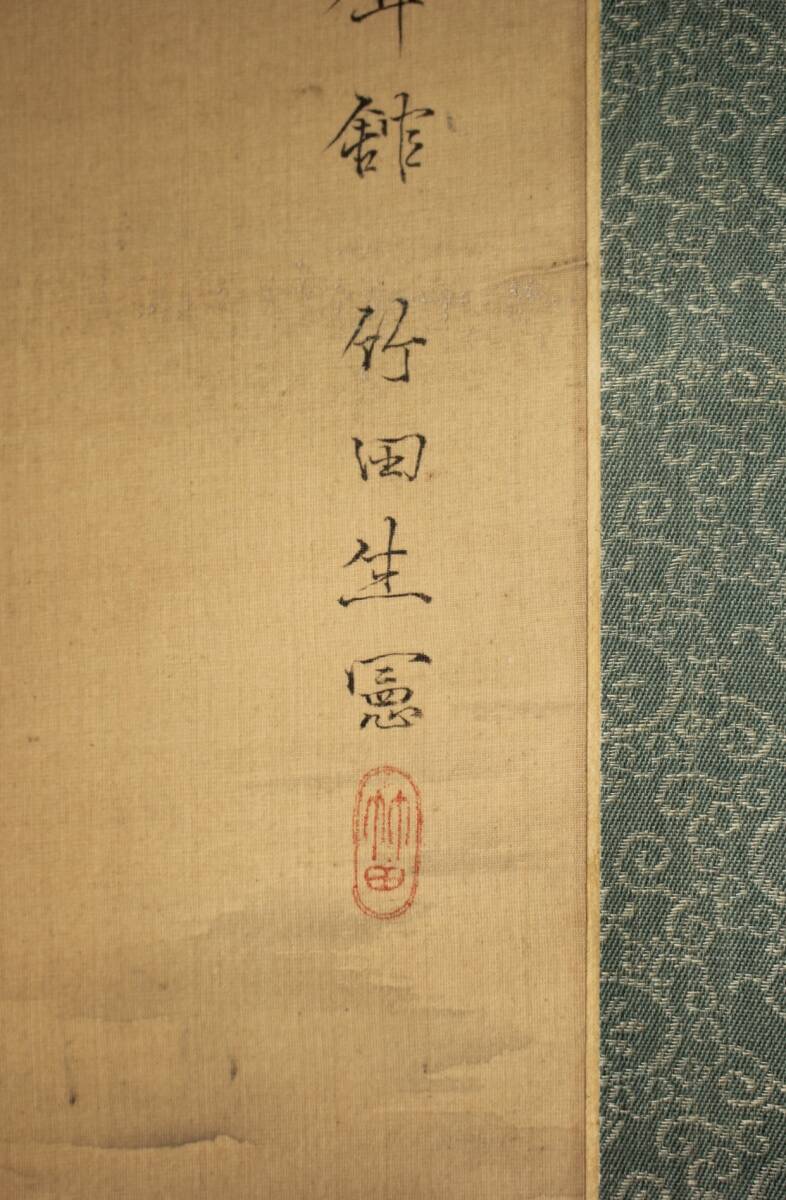 舘 竹田生憲
竹田